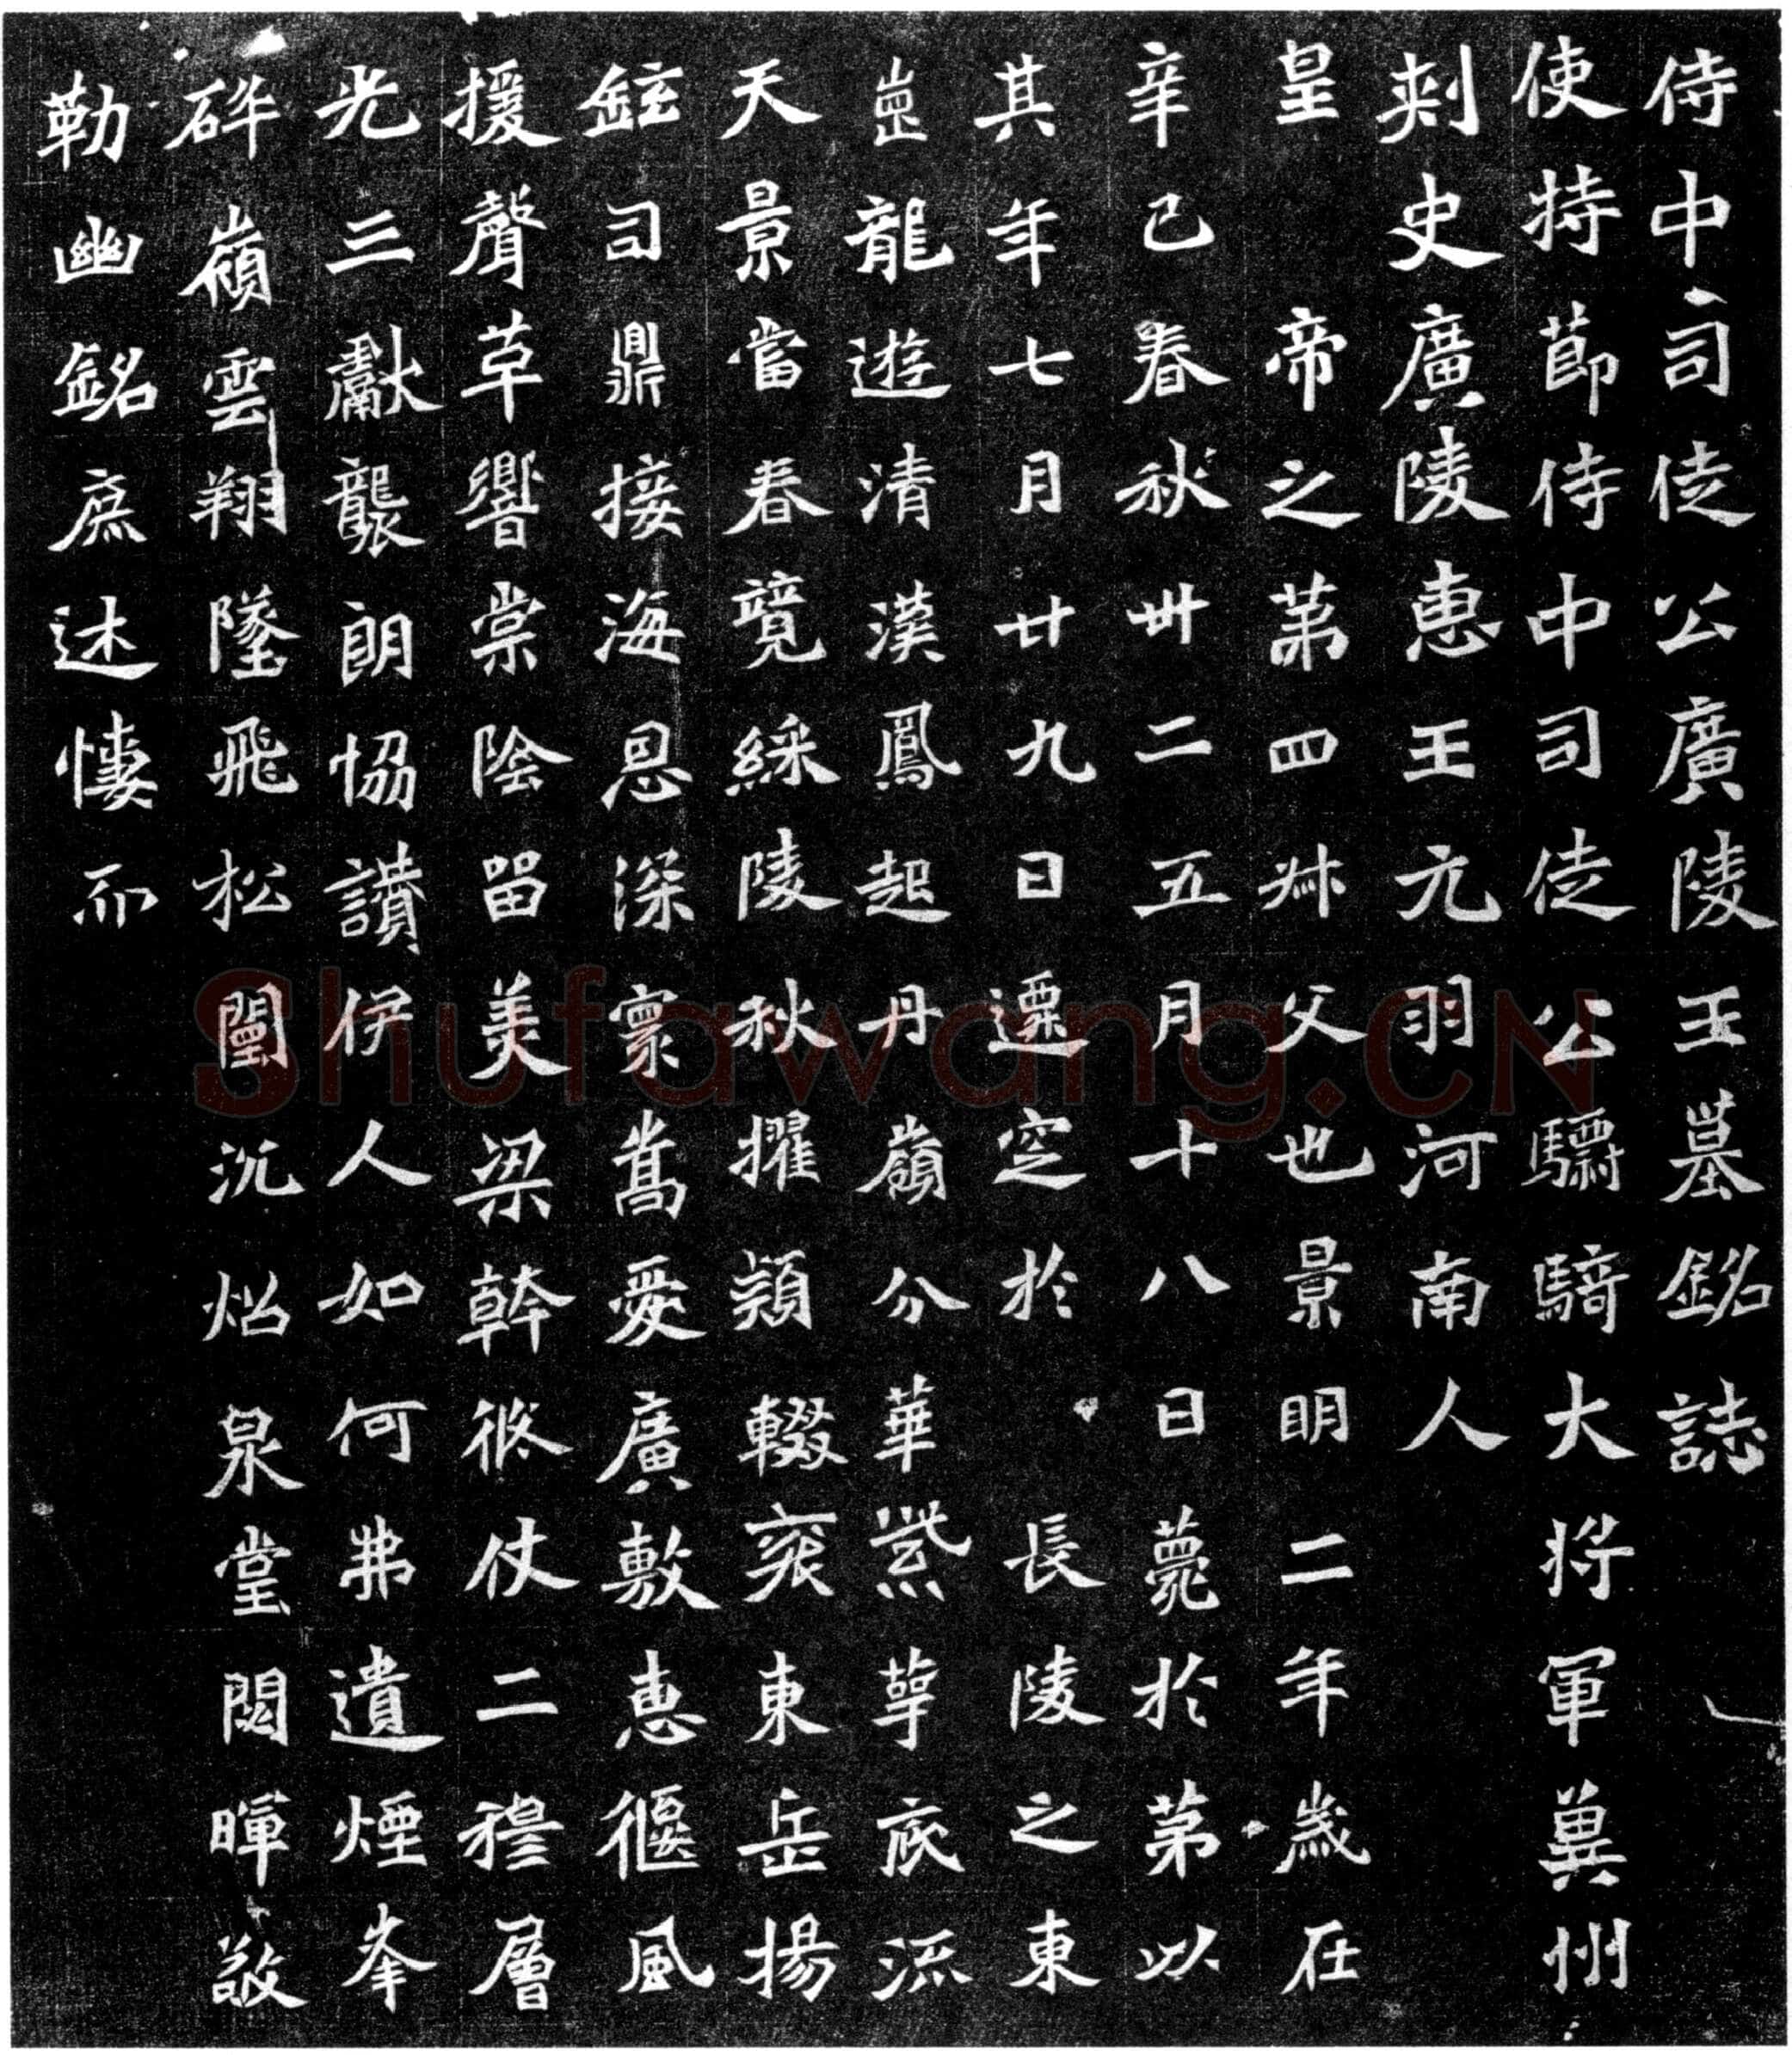 侍中司徒公廣陵王墓銘誌
使持節侍中司徒公驃騎大將軍冀州
刺史廣陵惠王元羽河南人
皇帝之第四叔父也景明二年歲在
辛巳春秋卅二五月十八日薨於第以
其年七月廿九日遷窆於長陵之東
崗龍遊清漢鳳起丹嶺分華紫萼底流
天景當春競綵陵秋擢穎輟衮東岳揚
鉉司鼎接海恩深寰嵩愛廣敷惠偃風
援聲草響棠陰留美梁幹徙仗二穆層
光三獻襲朗協讚伊人如何弗遺煙峯
碎嶺雲翔墜飛松闈沉炤泉堂閟暉敬
勒幽銘庶述悽而
Shufawang.CN